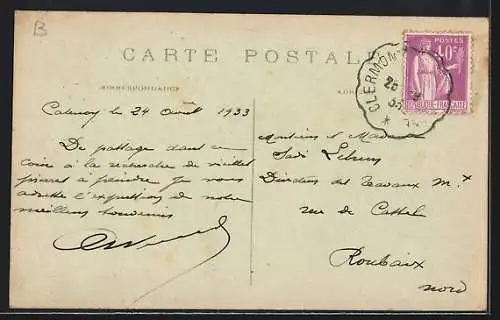 B
CARTE POSTALE
CORRESPONDANCE
POSTES
40c
RÉPUBLIQUE FRANÇAISE
CLERMONT
33
le 24 août 1933
De passage dans ce
coin à la recherche de vieilles
pierres à peindre je vous
adresse l'expression de notre
meilleurs souvenirs
Monsieur et Madame
Sadi Lebrun
Directeur des Travaux Mx
rue de Cassel
Roubaix
Nord